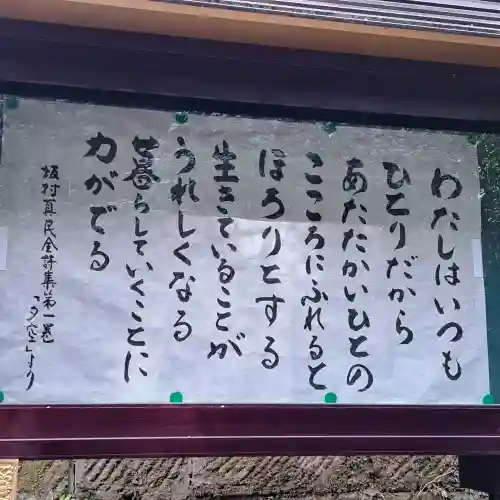 わたしはいつも
ひとりだから
あたたかいひとの
こころにふれると
ほろりとする
生きていることが
うれしくなる
暮らしていくことに
力がでる
坂村真民全詩集第一巻
「夕空」より